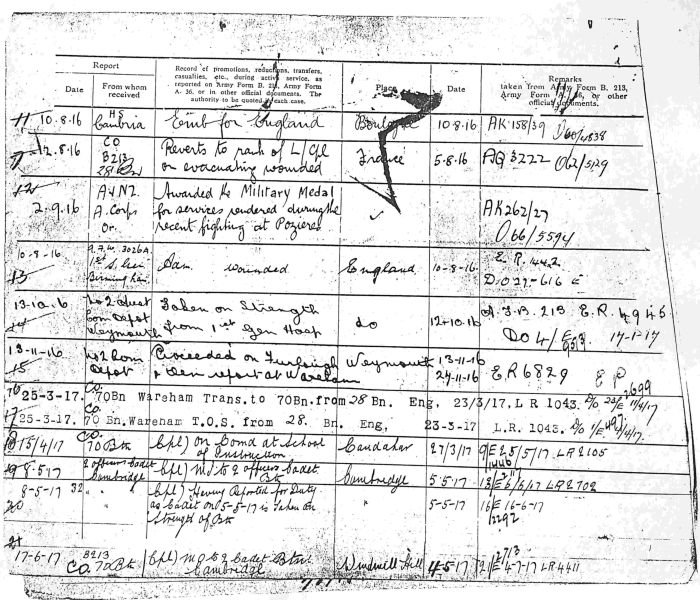 Report
Record of promotions, reductions, transfers,
casualties, etc., during active service, as
reported on Army Form B. 213, Army Form
A. 36, or in other official documents. The
authority to be quoted in each case.
Place
Date
Remarks
taken from Army Form B. 213,
Army Form A. 36, or other
official documents.
Date
From whom
received
11 10.8.16 HS Cambria Emb for England Boulogne 10.8.16 AK 158/39 O60/4838
12.8.16 CO B213 28 Reverts to rank of L/Cpl France 5.8.16 AQ 3222 O62/5129
on evacuating wounded
12 2.9.16 A & NZ A. Corps Awarded the Military Medal
for services rendered during the AK262/27
recent fighting at Pozieres O66/5594
13 10-8-16 A.F.W. 3026A wounded England 10-8-16 E.R. 442
Birmingham D.022-616 E
14 13.10.16 No 2 Com Depot Weymouth Taken on Strength do 12-10-16 A.F.B. 213 E.R. 4945
from 1st Gen Hosp DO 4/ 17-1-17
15 13-11-16 No 2 Com Depot Proceeded on Furlough Weymouth 13-11-16
& then report at Wareham 27-11-16 E.R 6829
16 25-3-17. CO. 70Bn Wareham Trans. to 70Bn. from 28 Bn. Eng, 23/3/17. LR 1043.
17 25-3-17. CO. 70 Bn. Wareham T.O.S. from 28. Bn. Eng, 23-3-17 L.R. 1043.
18 15/4/17 CO. 70 Btn Cpl) on Comd at School Candahar 27/3/17 5/5/17. LR 2105
of Instruction
19 8-5-17 2 Officers Cadet Cambridge Cpl) M.O. to 2 Officers Cadet Cambridge 5.5.17 LR 2702
Btn
20 8-5-17 32 " " Cpl) Having Reported for Duty " 5-5-17 16E 16-6-17
as Cadet on 5-5-17 is Taken on 2292
Strength of Btn
21 17-6-17 B213 CO. 70 Btn Cpl) M.O. to 2 Cadet Btn Windmill Hill 4-5-17 21E 2713 4-7-17 LR 4411
Cambridge